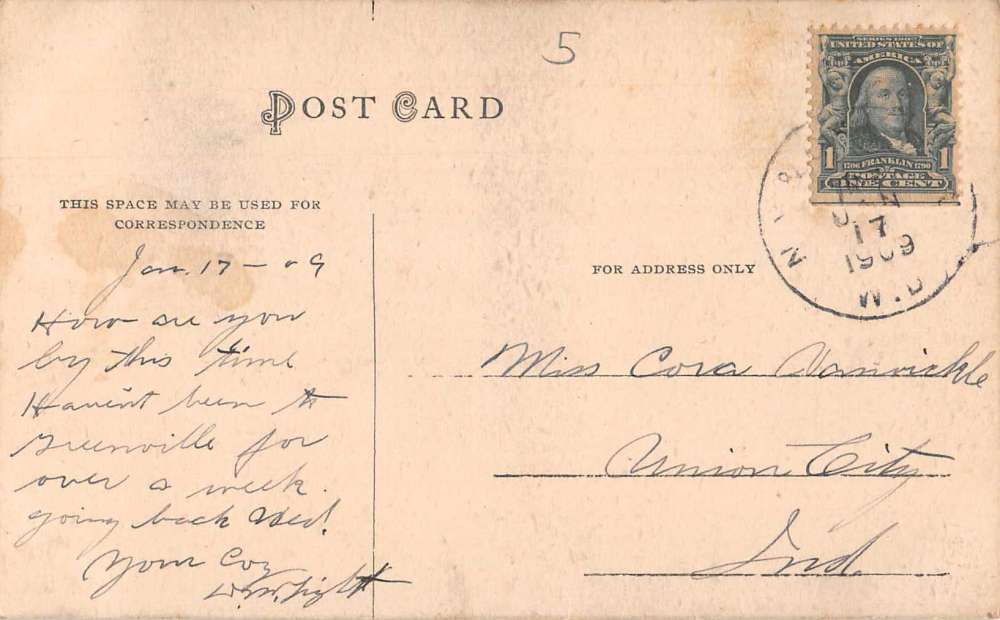 5
POST CARD
SERIES 1902
UNITED STATES OF
AMERICA
1 1
1706 FRANKLIN 1790
POSTAGE
ONE CENT
JAN
17
1909
THIS SPACE MAY BE USED FOR
CORRESPONDENCE
FOR ADDRESS ONLY
Jan. 17 - 09
How are you
by this time
Havent been to
Greenville for
over a week.
going back Wed.
Your Coz
Miss Cora Vanvickle
Union City
Ind.